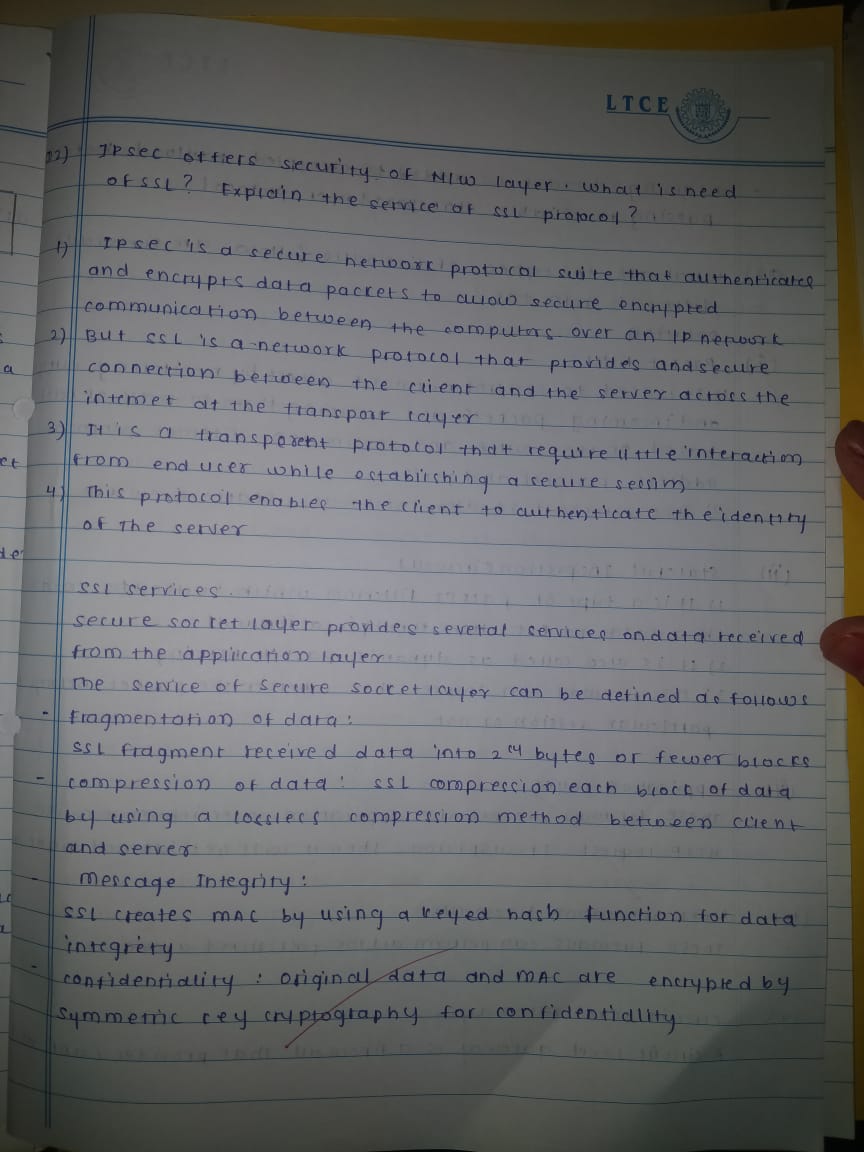 LTCE
22) IPsec offers security of N/W layer. what is need
of SSL? Explain the service of SSL protocol?
1) IPsec is a secure network protocol suite that authenticates
and encrypts data packets to allow secure encrypted
communication between the computers over an IP network
2) But SSL is a network protocol that provides and secure
connection between the client and the server across the
internet at the transport layer
3) It is a transparent protocol that require little interaction
from end user while establishing a secure session
4) This protocol enables the client to authenticate the identity
of the server
SSL services.
secure socket layer provides several services on data received
from the application layer
The service of secure socket layer can be defined as follows
- fragmentation of data:
SSL fragment received data into 2^14 bytes or fewer blocks
- compression of data: SSL compression each block of data
by using a lossless compression method between client
and server
- message Integrity:
SSL creates MAC by using a keyed hash function for data
integrety
- confidentiality: original data and MAC are encrypted by
symmetric key cryptography for confidentiality